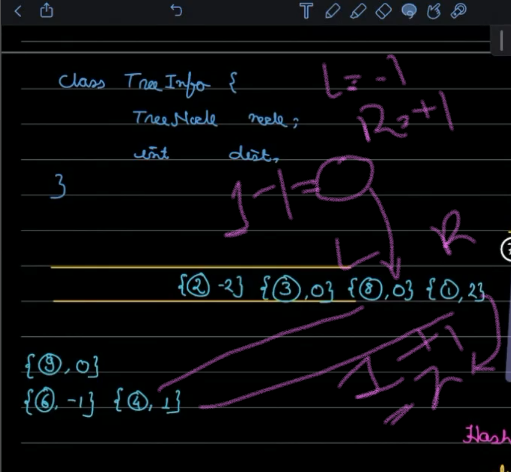 T
Class TreeInfo {
L = -1
TreeNode node;
R = +1
int dist,
}
1-1=0
L R
{②-2} {③,0} {⑧,0} {①,2}
{⑨,0}
{⑥,-1} {④,1}
1+1
= 2
Hash